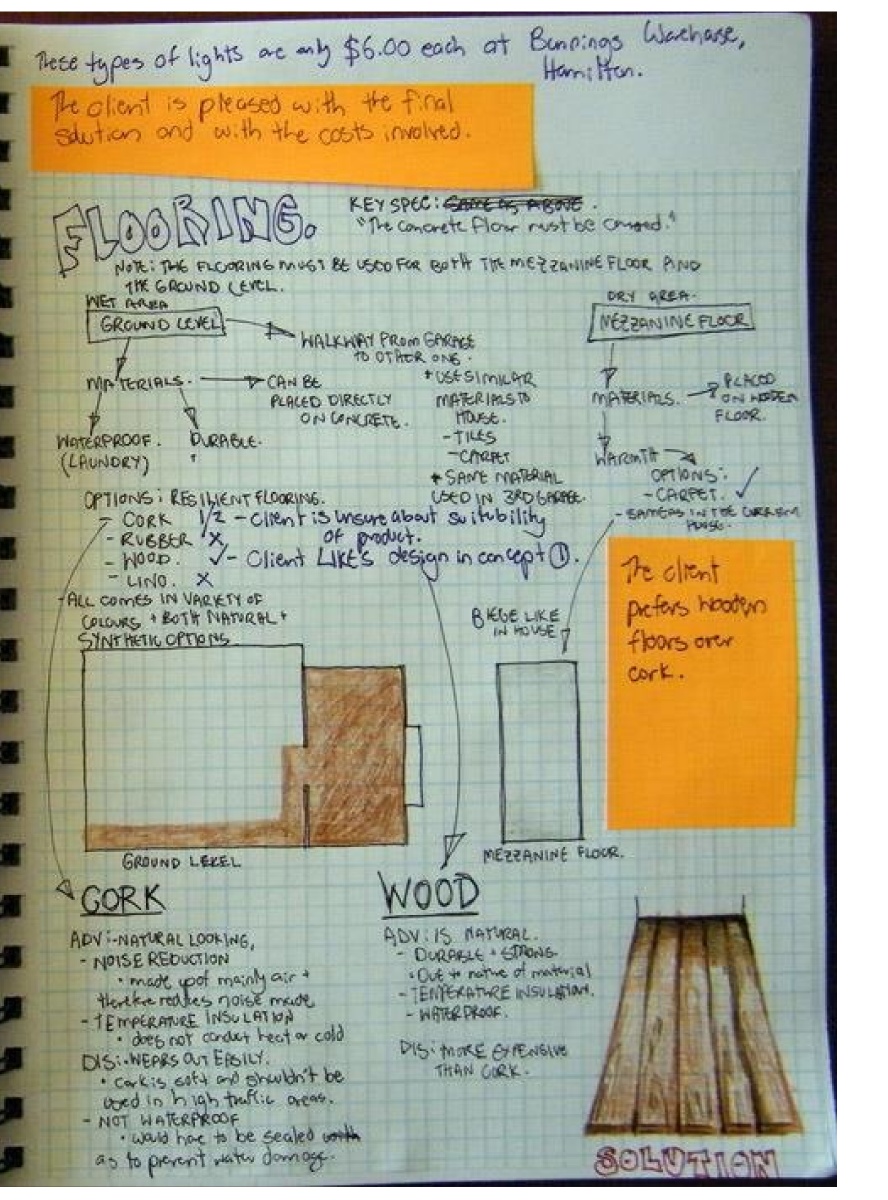 These types of lights are only $6.00 each at Bunnings Warehouse,
Hamilton.
The client is pleased with the final
solution and with the costs involved.
FLOORING.
KEY SPEC: SAME AS ABOVE.
"The concrete floor must be covered."
NOTE: THE FLOORING MUST BE USED FOR BOTH THE MEZZANINE FLOOR AND
THE GROUND LEVEL.
WET AREA
GROUND LEVEL
WALKWAY FROM GARAGE
TO OTHER ONE.
MATERIALS.
CAN BE
PLACED DIRECTLY
ON CONCRETE.
WATERPROOF.
(LAUNDRY)
DURABLE.
+ USE SIMILAR
MATERIALS TO
HOUSE.
- TILES
- CARPET
+ SAME MATERIAL
USED IN 3RD GARAGE.
DRY AREA.
MEZZANINE FLOOR
MATERIALS.
PLACED
ON WOODEN
FLOOR.
WARMTH
OPTIONS:
- CARPET. ✓
- SAME AS IN THE CURRENT
HOUSE.
OPTIONS: RESILIENT FLOORING.
- CORK 1/2 - Client is unsure about suitability
of product.
- RUBBER X
- WOOD. ✓ - Client LIKE's design in concept ①.
- LINO. X
- ALL COMES IN VARIETY OF
COLOURS + BOTH NATURAL +
SYNTHETIC OPTIONS
BIEGE LIKE
IN HOUSE
The client
prefers wooden
floors over
cork.
GROUND LEVEL
MEZZANINE FLOOR.
CORK
ADV:- NATURAL LOOKING,
- NOISE REDUCTION
• made up of mainly air +
therefore reduces noise made
- TEMPERATURE INSULATION
• does not conduct heat or cold
DIS:- WEARS OUT EASILY.
• cork is soft and shouldn't be
used in high traffic areas.
- NOT WATERPROOF
• would have to be sealed with
as to prevent water damage.
WOOD
ADV: IS NATURAL.
- DURABLE + STRONG
• Due to nature of material
- TEMPERATURE INSULATION.
- WATERPROOF.
DIS: MORE EXPENSIVE
THAN CORK.
SOLUTION